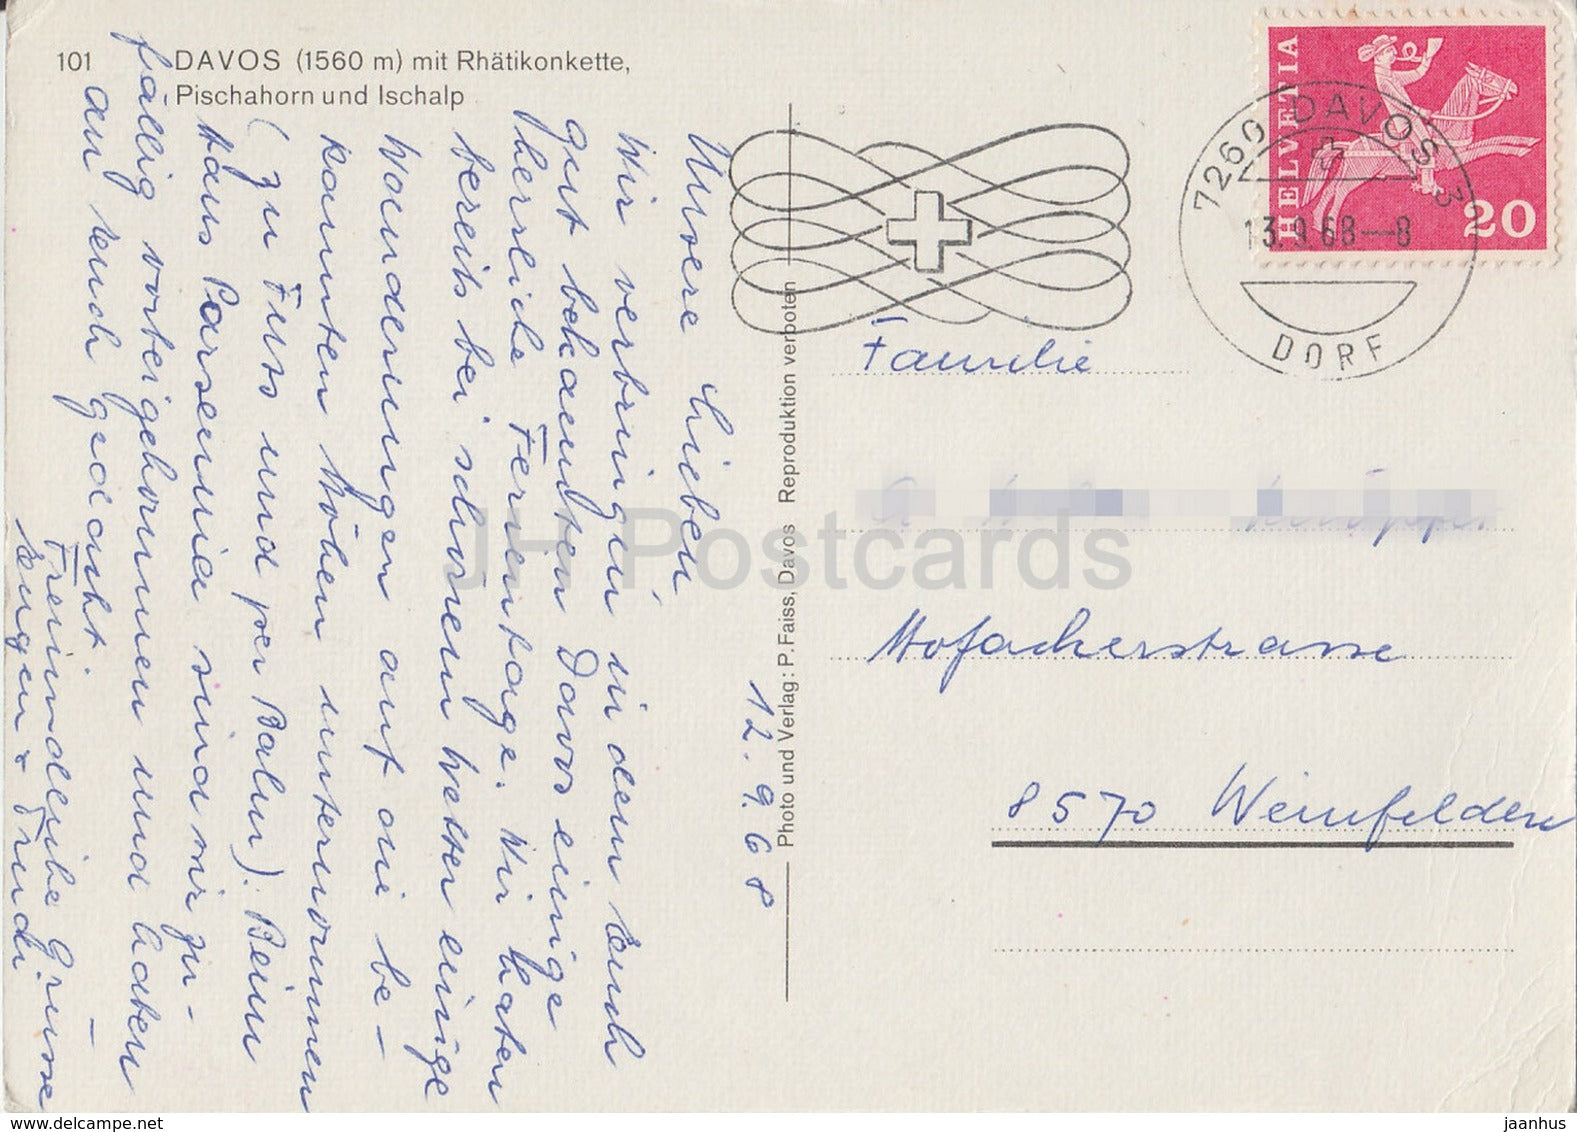 101 DAVOS (1560 m) mit Rhätikonkette,
Pischahorn und Ischalp
12.9.68
Unsere Lieben
Wir verbringen in dem Euch
gut bekannten Davos einige
herrliche Ferientage. Wir haben
bereits bei schönem Wetter einige
Wanderungen auf die be-
kannten Höhen unternommen
(zu Fuss und per Bahn). Beim
Haus Parsenna sind wir zu-
fällig vorbeigekommen und haben
an Euch gedacht. –
Freundliche Grüsse
Eugen & Trudi
Photo und Verlag: P. Faiss, Davos Reproduktion verboten
HELVETIA
20
7260 DAVOS 3
13.9.68–8
DORF
Familie
Hofackerstrasse
8570 Weinfelden
JH Postcards
www.delcampe.net
jaanhus